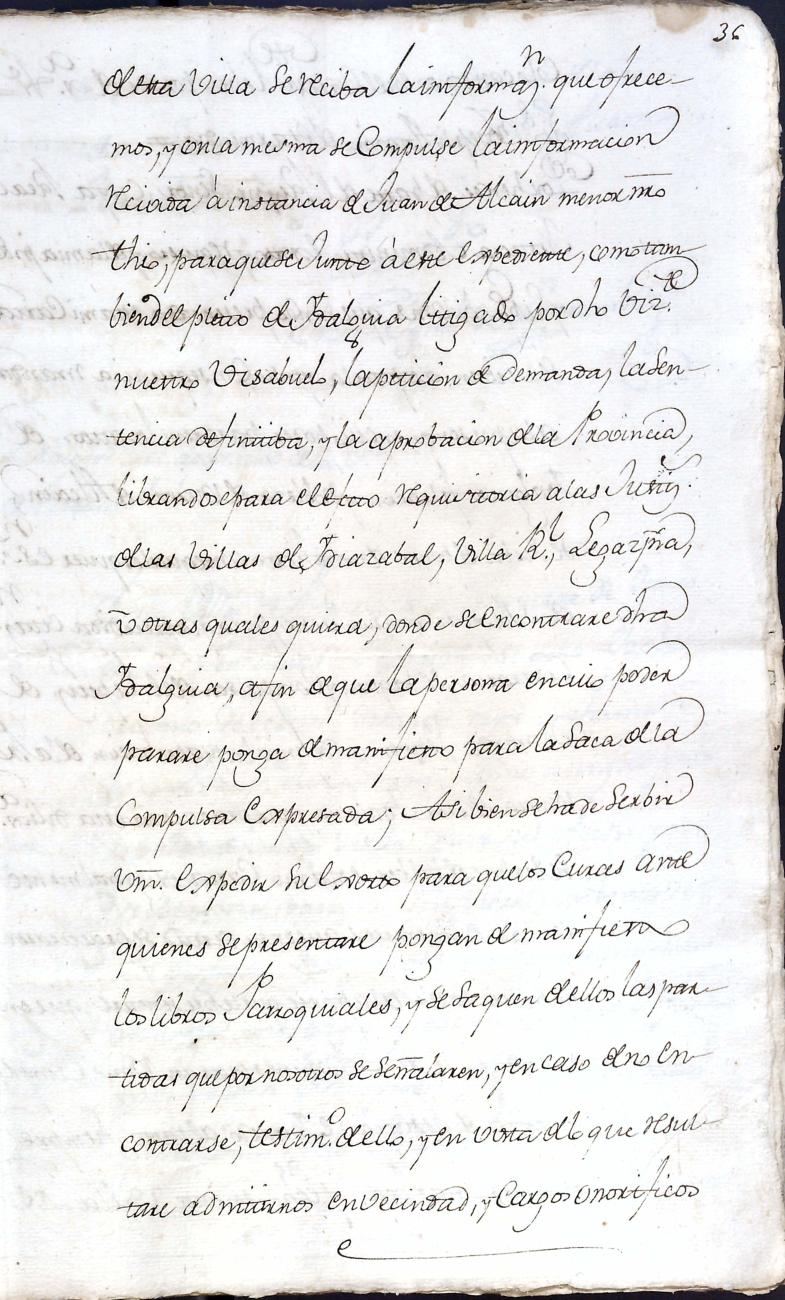 36
de esta Villa se reciba la informaⁿ. que ofrece-
mos, y en la mesma se Compulse la informacion
recivida à instancia de Juan de Alcain menor nrō
thio, para que se Junte à este expediente, como tam-
bien del pleito de Hidalguia litigado por dho Viz.ᵗᵉ
nuestro Visabuelo, la peticion de demanda, la Sen-
tencia definitiba, y la aprobacion de la Provincia,
librandose para el efecto requisitoria a las Justiz.ˢ
de las Villas de Idiazabal, Villa R.ˡ, Legazpia,
ū otras quales quiera, donde se encontrare dha
Hidalguia, afin de que la persona en cuio poder
parare ponga de manifiesto para la Saca de la
Compulsa Expresada; Asi bien se ha de Serbir
Vm̄. Expedir su Exorto para que los Curas ante
quienes se presentare pongan de manifiesto
los libros Parroquiales, y se Saquen de ellos las par-
tidas que por nosotros se Señalaren, y en caso de no en-
contrarse, testim.º de ello, y en vista de lo que resul-
tare admitirnos en vecindad, y Cargos onorificos